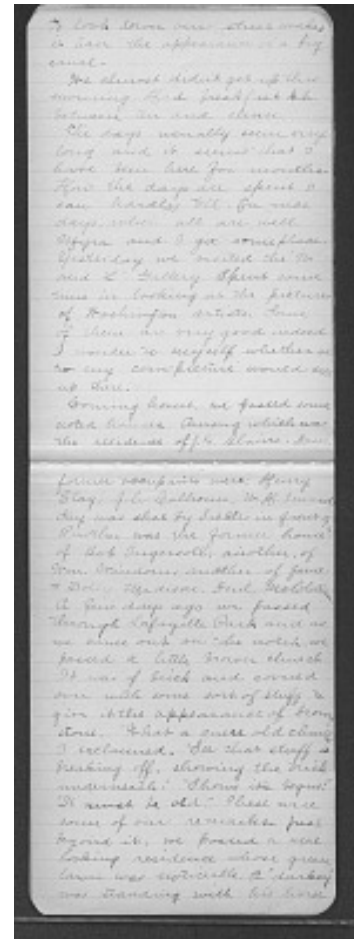 to look down our street makes
it have the appearance of a big
canal.
We almost didn't get up this
morning. Had breakfast
between ten and eleven.
The days usually seem very
long and it seems that I
have been here for months.
How the days are spent I
can hardly tell. On most
days, when all are well
Myra and I go someplace.
Yesterday we visited the
and L Gallery. Spent some
time in looking at the pictures
of Washington artists. Some
of them are very good indeed
I wonder to myself whether
my own picture would
up there.
Coming home, we passed some
noted homes. Among which was
the residence of J. G. Blaine.
former occupants were Henry
Clay, J. C. Calhoun, W. H. Seward
Key was shot by Sickles in front of
Another was the former home
of Bob Ingersoll, another, of
Wm. Windom another of Jane
Dolly Madison.
A few days ago we passed
through Lafayette Park and as
we came out on the we
passed a little brown church
It was of brick and covered
over with some sort of stuff to
give it the appearance of brown
stone. "What a queer old church"
I exclaimed. "See that stuff is
breaking off, showing the brick
underneath." "Shows its
"It must be old." These were
some of our remarks. Just
beyond it, we passed a nice
looking residence whose green
lawn was noticeable. A "darkey"
was standing with his horse